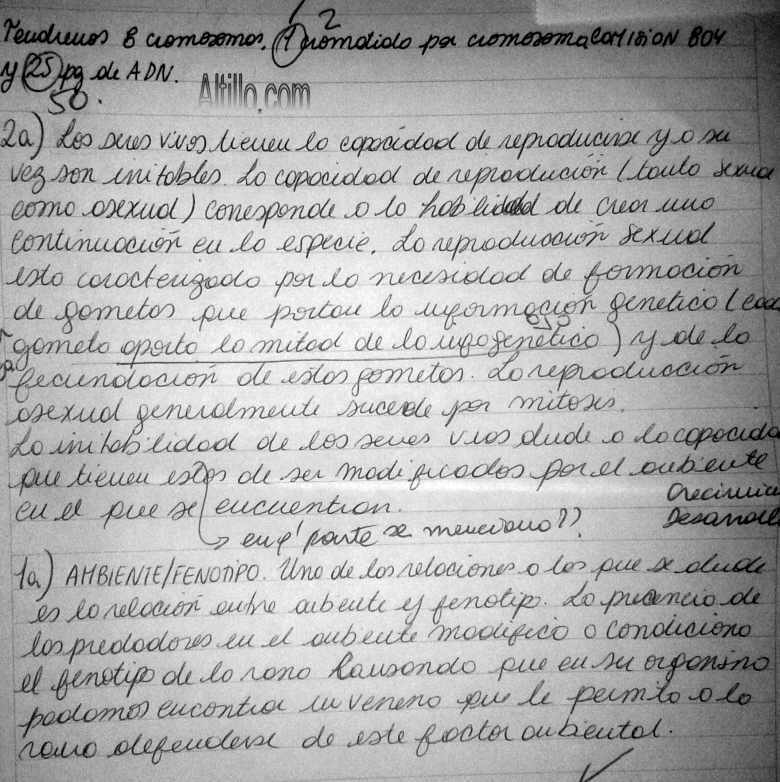 2
Tendremos 8 cromosomas, 1 cromátida por cromosoma COMISION 804
y 25 pg de ADN.
50.
Altillo.com
2a) Los seres vivos tienen la capacidad de reproducirse y a su
vez son irritables. La capacidad de reproducción (tanto sexual
como asexual) corresponde a la habilidad de crear una
continuación en la especie. La reproducción sexual
esta caracterizada por la necesidad de formación
de gametos que portan la información genética (cada
gameto aporta la mitad de la info genética) y de la
fecundación de estos gametos. La reproducción
asexual generalmente sucede por mitosis.
La irritabilidad de los seres vivos alude a la capacidad
que tienen estos de ser modificados por el ambiente
en el que se encuentran.
Crecimie
Desarroll
→ en q' parte se menciona??
1a) AMBIENTE/FENOTIPO. Una de las relaciones a las que se alude
es la relación entre ambiente y fenotipo. La presencia de
los predadores en el ambiente modifica o condiciona
el fenotipo de la rana causando que en su organismo
podamos encontrar un veneno que le permita a la
rana defenderse de este factor ambiental.